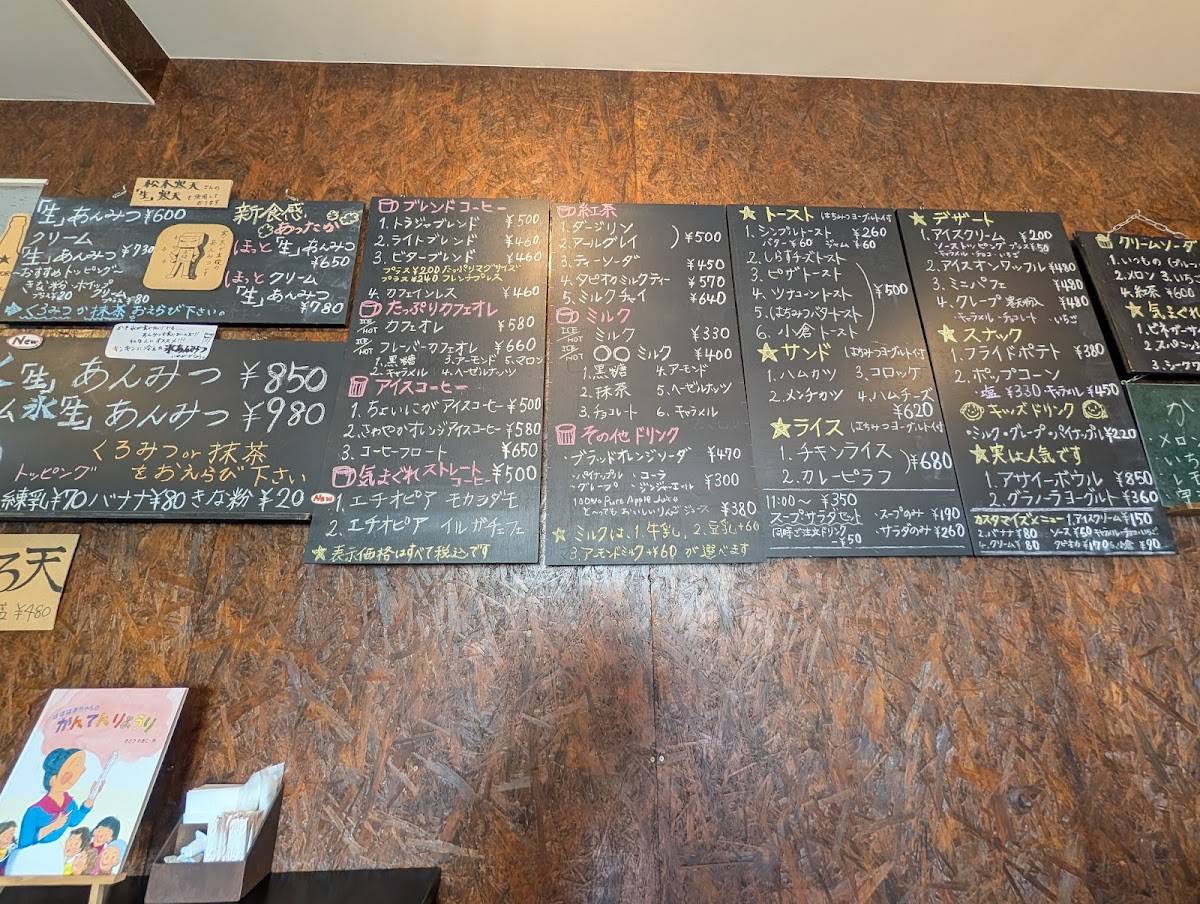 松木寒天さんの
「生」寒天を使用して
おります
「生」あんみつ ¥600
クリーム
「生」あんみつ ¥730
おすすめトッピング
きな粉・ホイップ
プラス¥20 クリーム
プラス¥80
くろみつか抹茶おえらび下さい。
新食感
あったか
ほっと「生」あんみつ
¥650
ほっとクリーム
「生」あんみつ
¥780
New
「生」あんみつ ¥850
ム氷「生」あんみつ ¥980
くろみつor抹茶
をおえらび下さい
トッピング
練乳¥70 バナナ¥80 きな粉¥20
ろ天
¥480
かんてんりょうり
ブレンドコーヒー
1.トラジャブレンド ¥500
2.ライトブレンド ¥460
3.ビターブレンド ¥460
プラス¥200 たっぷりマグサイズ
プラス¥240 フレンチプレス
4.カフェインレス ¥460
たっぷりカフェオレ
ICE HOT カフェオレ ¥580
ICE HOT フレーバーカフェオレ ¥660
1.黒糖 3.アーモンド 5.マロン
2.キャラメル 4.ヘーゼルナッツ
アイスコーヒー
1.ちょいにがアイスコーヒー ¥500
2.さわやかオレンジアイスコーヒー ¥580
3.コーヒーフロート ¥650
気まぐれストレートコーヒー ¥500
New
1.エチオピア モカシダモ
2.エチオピア イルガチェフェ
★表示価格はすべて税込です
紅茶
1.ダージリン
2.アールグレイ ) ¥500
3.ティーソーダ ¥450
4.タピオカミルクティー ¥570
5.ミルクチャイ ¥640
ミルク
ICE HOT ミルク ¥330
ICE HOT ○○ミルク ¥400
1.黒糖 4.アーモンド
2.抹茶 5.ヘーゼルナッツ
3.チョコレート 6.キャラメル
その他ドリンク
・ブラッドオレンジソーダ ¥470
・パイナップル ・コーラ
・グレープ ・ジンジャーエール ¥300
100% Pure Apple Juice
とーってもおいしいりんごジュース ¥380
★ミルクは、1.牛乳、2.豆乳+60
3.アーモンドミルク+¥60 が選べます
★トースト はちみつヨーグルト付
1.シンプルトースト ¥260
バター¥60 ジャム¥60
2.しらすチーズトースト
3.ピザトースト
4.ツナコーントースト ) ¥500
5.はちみつバタートースト
6.小倉トースト
★サンド はちみつヨーグルト付
1.ハムカツ 3.コロッケ
2.メンチカツ 4.ハムチーズ
¥620
★ライス はちみつヨーグルト付
1.チキンライス
2.カレーピラフ ) ¥680
11:00~ ¥350
スープ・サラダセット
同時ご注文ドリンク
-50
・スープのみ ¥190
サラダのみ ¥260
★デザート
1.アイスクリーム ¥200
ソーストッピングプラス¥50
キャラメル・チョコ・いちご
2.アイスオンワッフル ¥480
3.ミニパフェ ¥480
4.クレープ 寒天粉入 ¥480
・キャラメル・チョコレート いちご
★スナック
1.フライドポテト ¥380
2.ポップコーン
塩¥330 キャラメル¥450
キッズドリンク
・ミルク・グレープ・パイナップル ¥220
★実は人気です
1.アサイーボウル ¥850
2.グラノーラヨーグルト ¥360
カスタマイズメニュー 1.アイスクリーム¥150
2.バナナ¥80 ソース¥60
4.クリーム¥80 タピオカ¥170 小倉¥90
クリームソーダ
1.いつもの
2.メロン
4.紅茶 ¥600
★気まぐれ
か
・メロ
・いち